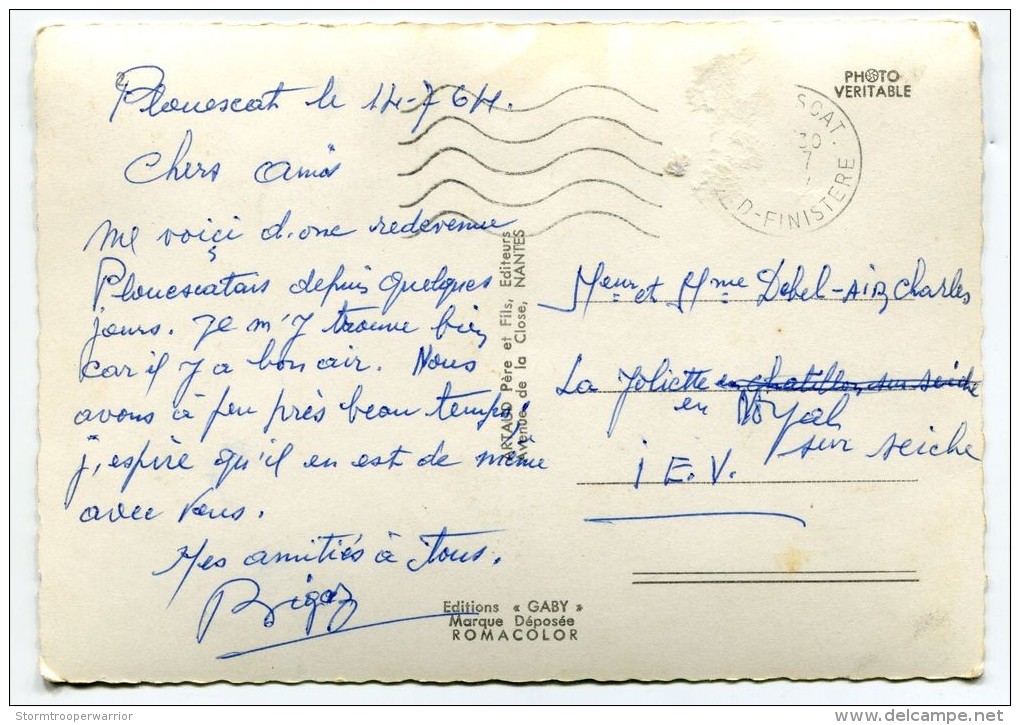 Plouescat le 14-7 64.
Chers Amis
me voiçi d.onc redevenue
Plouescatais depuis quelques
jours. Je m'y trouve bien
car il y a bon air. Nous
avons à peu près beau temps.
j'espère qu'il en est de même
avec vous.
Mes amitiés à tous.
PHOTO
VERITABLE
SCAT.
30
7
D-FINISTERE
Meur et Mme Debel-Air Charles
La Joliette en Chatillon sur seiche
en Noyal
sur seiche
I E.V.
ARTAUD Père et Fils, Editeurs
Avenue de la Close, NANTES
Editions « GABY »
Marque Déposée
ROMACOLOR
Stormtrooperwarrior
delcampe.net